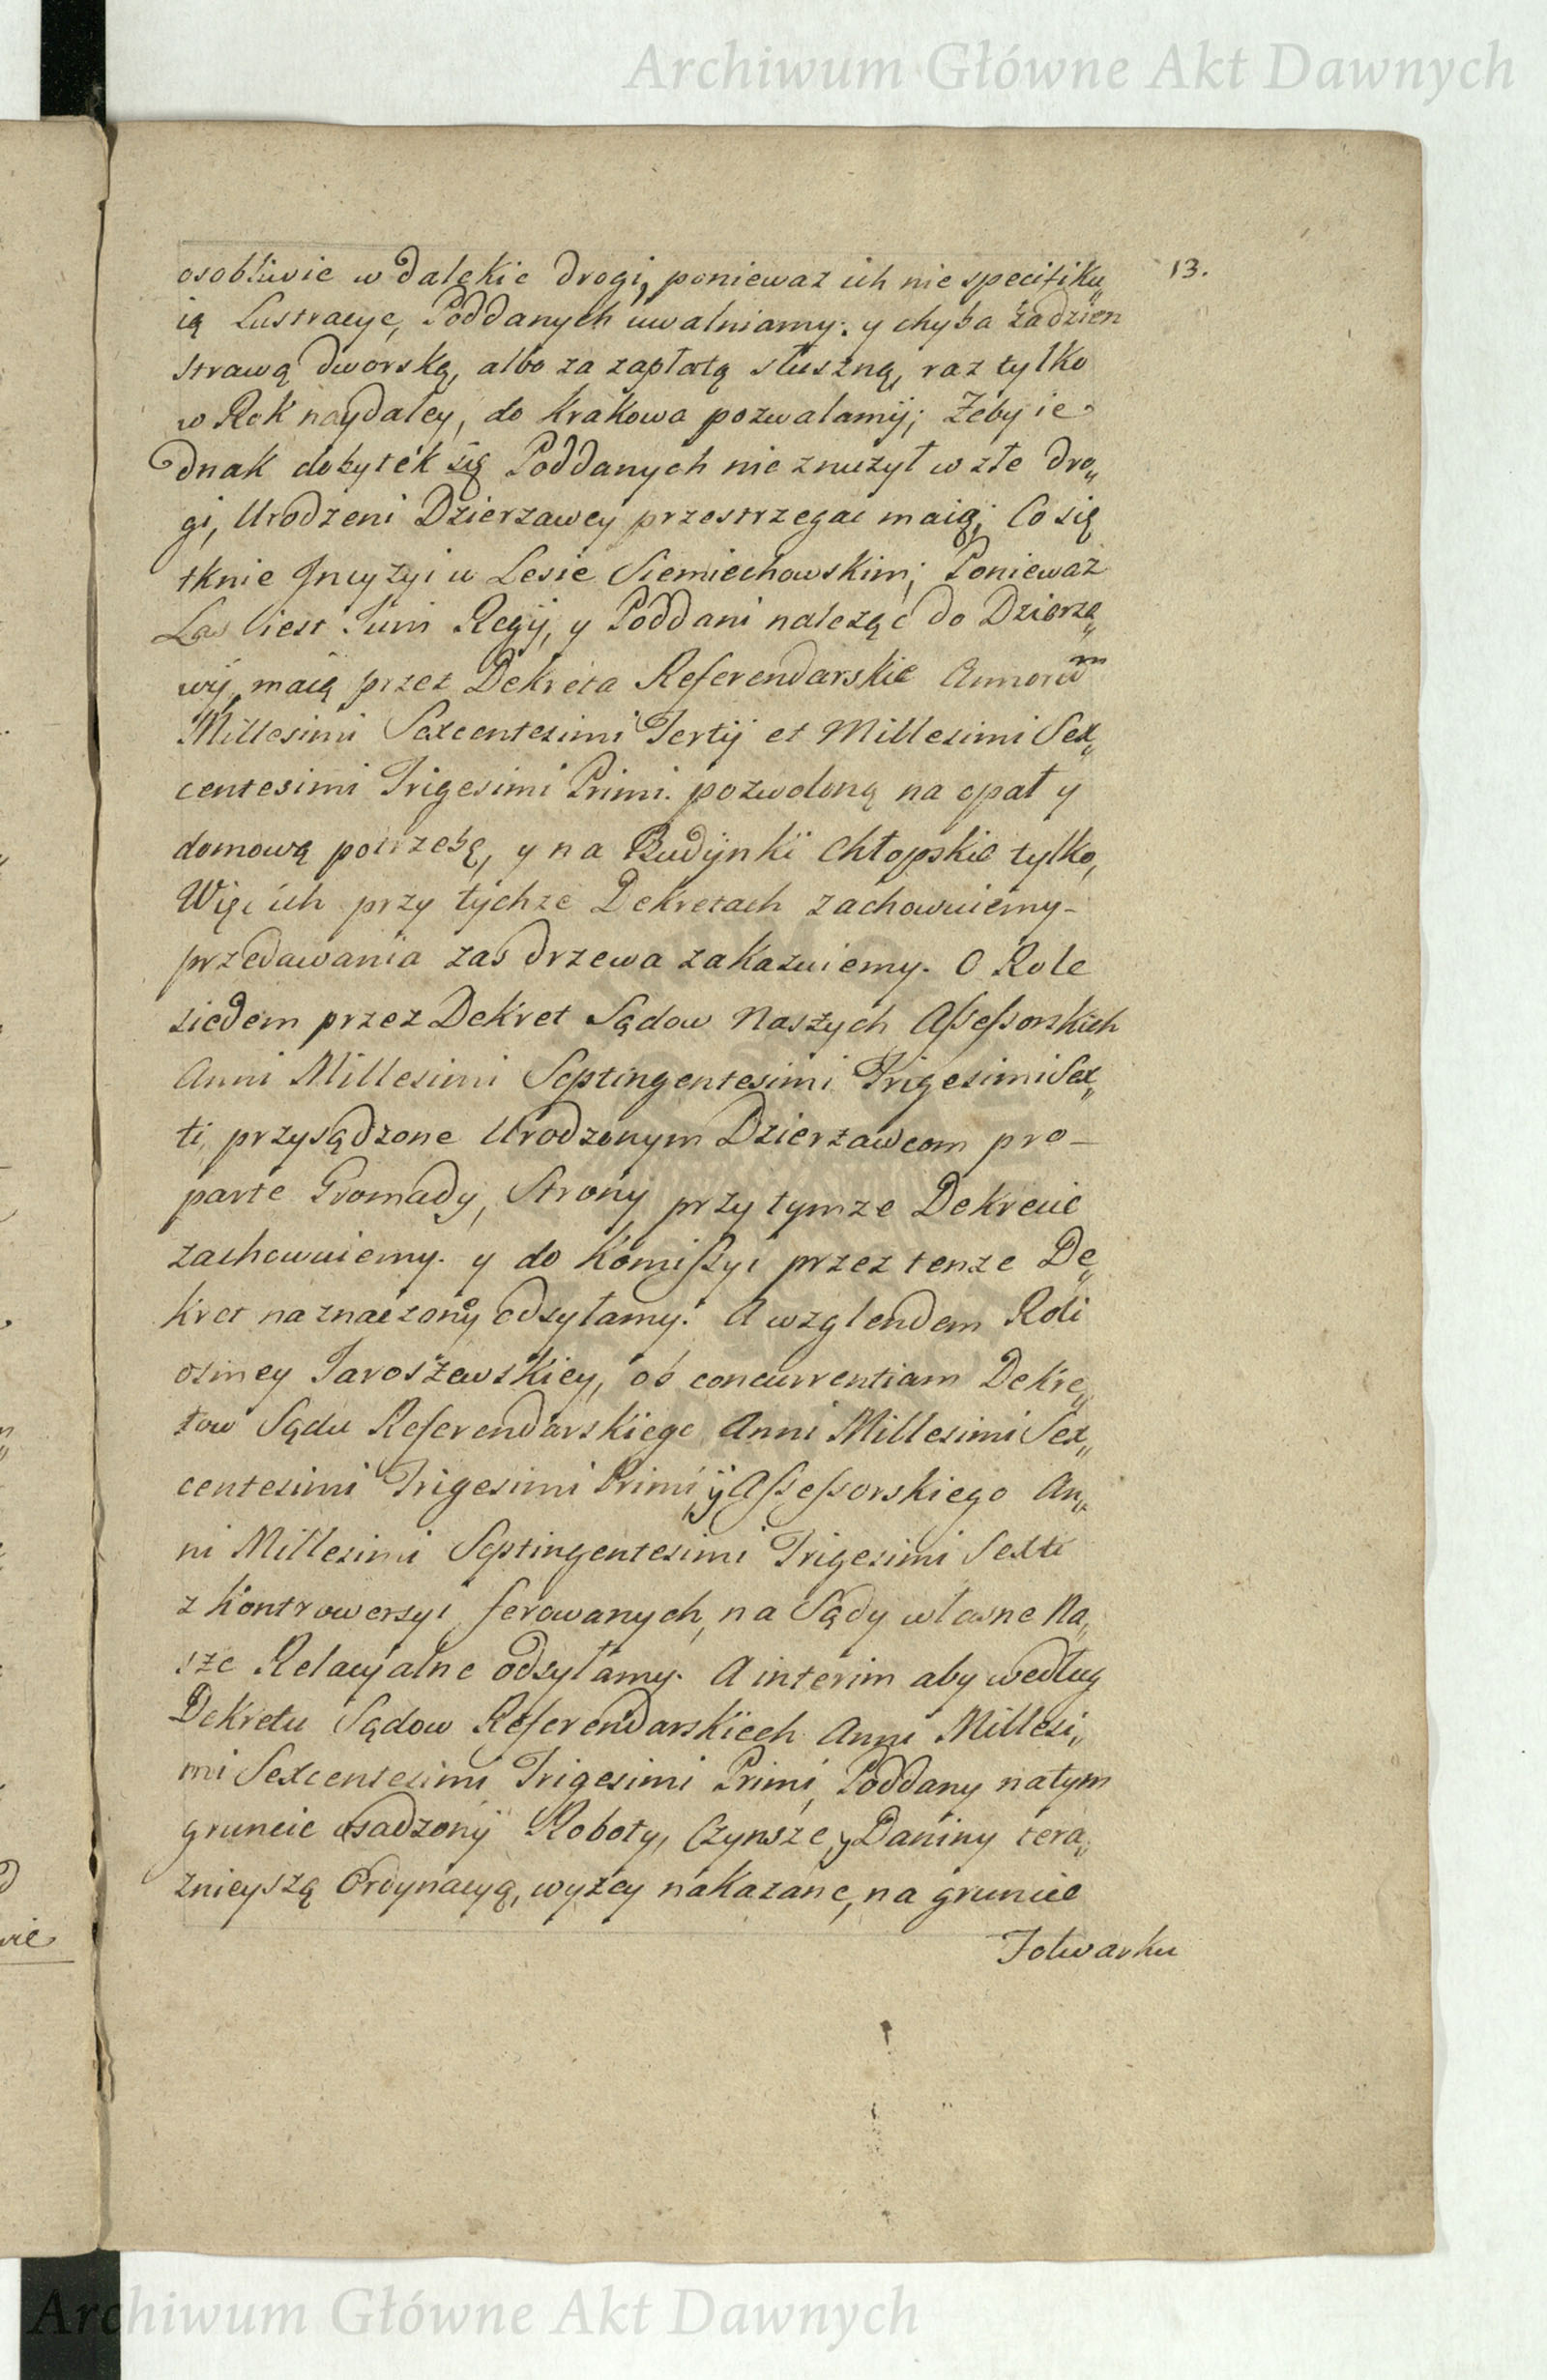 Archiwum Główne Akt Dawnych
13.
osobliwie w dalekie drogi, poniewaz ich nie specifiku„
ią Lustracye, Poddanych uwalniamy: y chyba za dzien
strawą dworską, albo za zapłatą słuszną, raz tylko
w Rok naydaley, do Krakowa pozwalamÿ; Zeby ie„
dnak dobytek się Poddanych nie znużył w złe dro„
gi, Urodzeni Dzierzawcy przestrzegac maią; Co się
tknie Jncyzyi w Lesie Siemiechowskim; Poniewaz
Las iest Suni Regÿ, y Poddani naleząc do Dzierza„
wÿ, maią przez Dekreta Referendarskie Annorum
Millesimi Sexcentesimi Tertÿ et Millesimi Sex„
centesimi Trigesimi Primi. pozwoloną na opał y
domową potrzebę, y na Budÿnki Chłopskie tylko,
Więc ich przy tychze Dekretach zachowuiemy-
przedawania zas drzewa zakazuiemy. O Role
siedem przez Dekret Sądow Naszych Assessorskich
Anni Millesimi Septingentesimi Trigesimi Sex„
ti, przysądzone Urodzonym Dzierzawcom pro-
parte Gromady, Strony przy tymze Dekrecie
zachowuiemy. y do Komissyi przez tenze De„
kret naznaczonÿ odsyłamy. A wzglendem Roli
osmey Jaroszewskiey, ob concurrentiam Dekre„
tow Sądu Referendarskiego Anni Millesimi Sex„
centesimi Trigesimi Primi, ÿ Assessorskiego An„
ni Millesimi Septingentesimi Trigesimi Sexti
z Kontrowersyi ferowanych, na Sądy własne Na„
sze Relacyalne odsyłamy. A interim aby według
Dekretu Sądow Referendarskiech Anni Millesi„
mi Sexcentesimi Trigesimi Primi, Poddany na tym
gruncie osadzonÿ Roboty, Czynsze, y Daniny tera„
znieyszą Ordynacyą, wyzey nakazane, na gruncie
Folwarku
Archiwum Główne Akt Dawnych